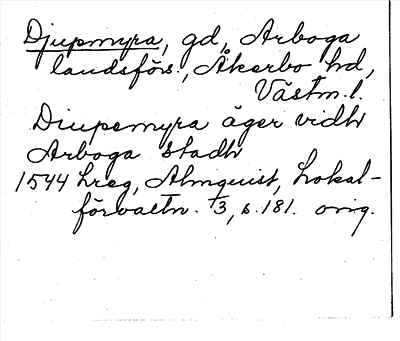 Djupmyra, gd, Arboga
landsförs., Åkerbo hd,
Västm. l.
Diupemyra äger vidh
Arboga stadh
1544 hreg, Almquist, Lokal-
förvaltn. 1/3, s. 181. orig.